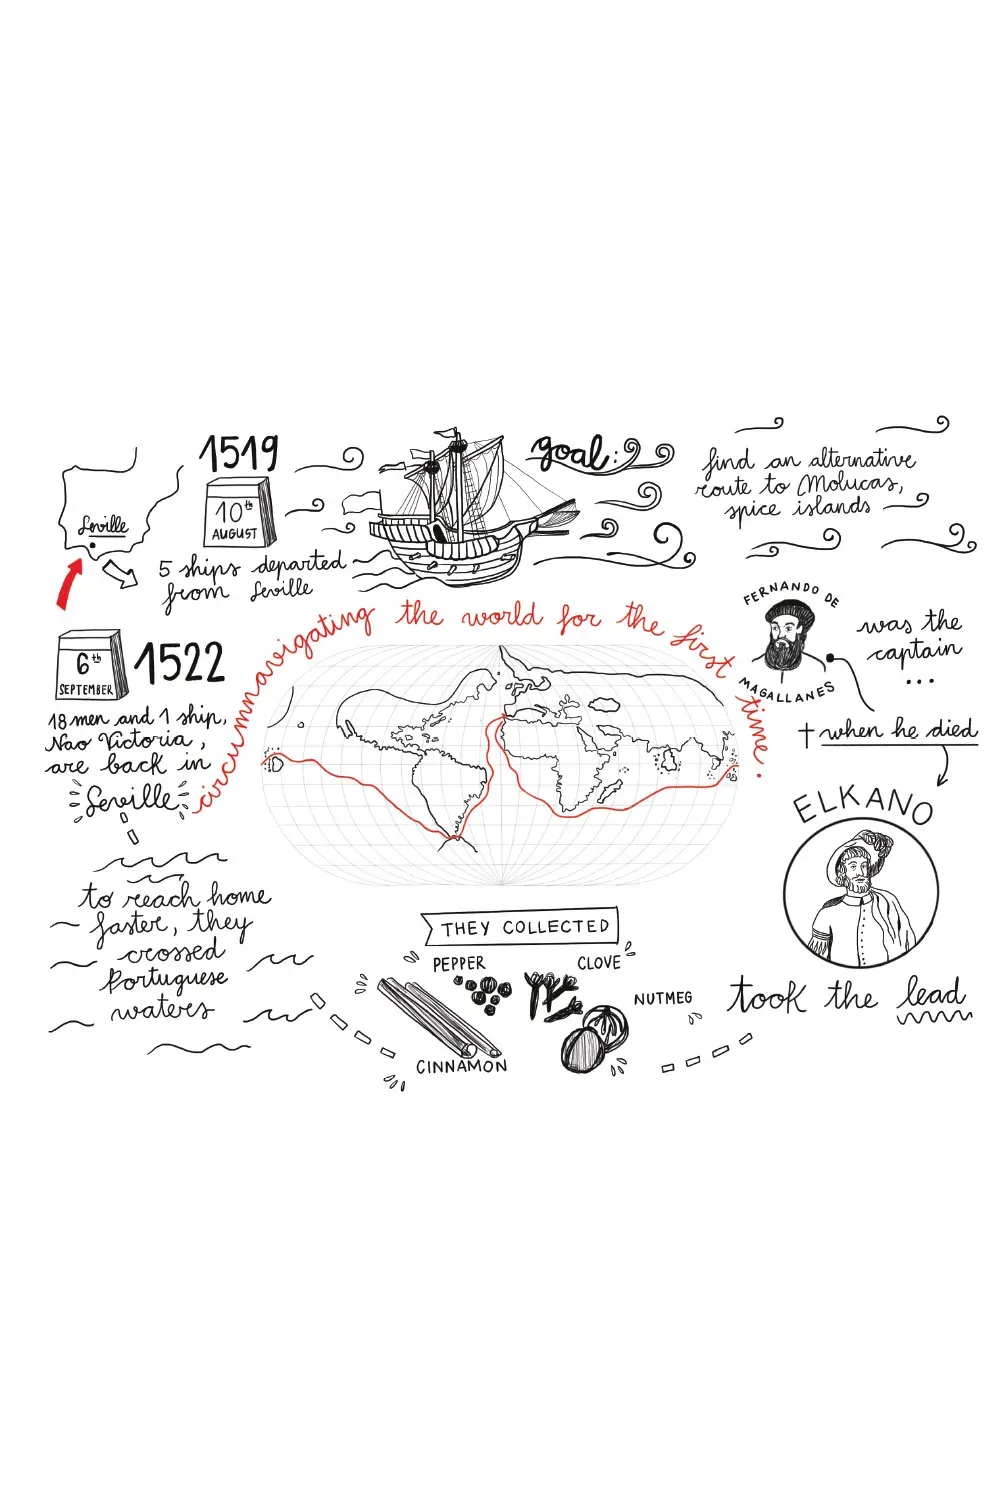 1519
10th
AUGUST
Seville
5 ships departed
from Seville
goal:
find an alternative
route to Molucas,
spice islands
circumnavigating the world for the first time.
FERNANDO DE
MAGALLANES
was the
captain
...
† when he died
ELKANO
took the lead
THEY COLLECTED
PEPPER
CLOVE
NUTMEG
CINNAMON
6th
SEPTEMBER
1522
18 men and 1 ship,
Nao Victoria,
are back in
Seville
to reach home
faster, they
crossed
Portuguese
waters